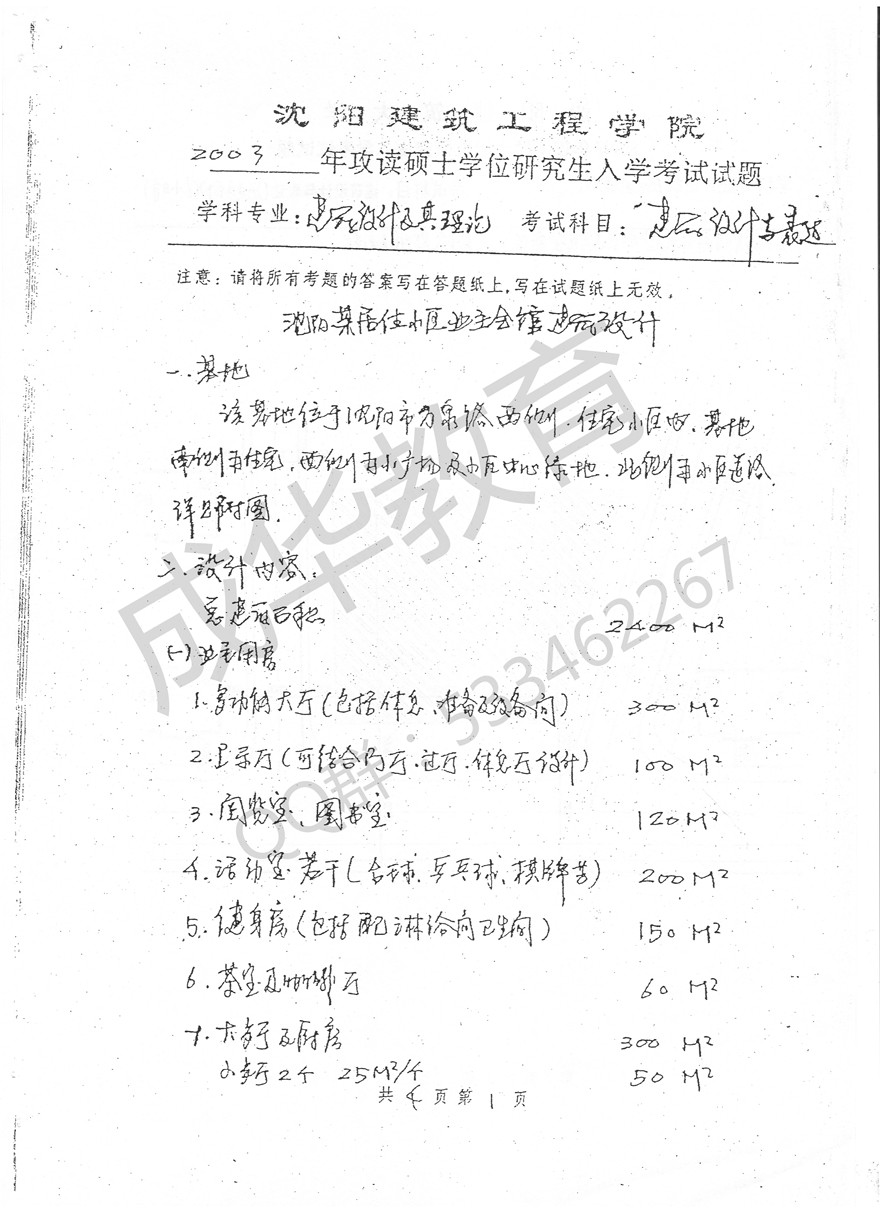 沈阳建筑工程学院
2003年攻读硕士学位研究生入学考试试题
学科专业：建筑设计及其理论 考试科目：建筑设计与表达
注意：请将所有考题的答案写在答题纸上，写在试题纸上无效。
沈阳某居住小区业主会馆建筑设计
一．基地
该基地位于沈阳市万泉路西侧．住宅小区内．基地
南侧为住宅，西侧为小广场及小区中心绿地．北侧为小区道路
详见附图．
二．设计内容：
总建筑面积 2400 M²
(一)业主用房
1．多功能大厅(包括休息、准备及设备间) 300 M²
2．展示厅(可结合门厅．过厅．休息厅设计) 100 M²
3．阅览室、图书室 120 M²
4．活动室若干(台球、乒乓球、棋牌等) 200 M²
5．健身房(包括配淋浴间卫生间) 150 M²
6．茶室及咖啡厅 60 M²
7．大餐厅及厨房 300 M²
小餐厅2个 25M²/个 50 M²
共4页第1页
成华教育
QQ群：533462267